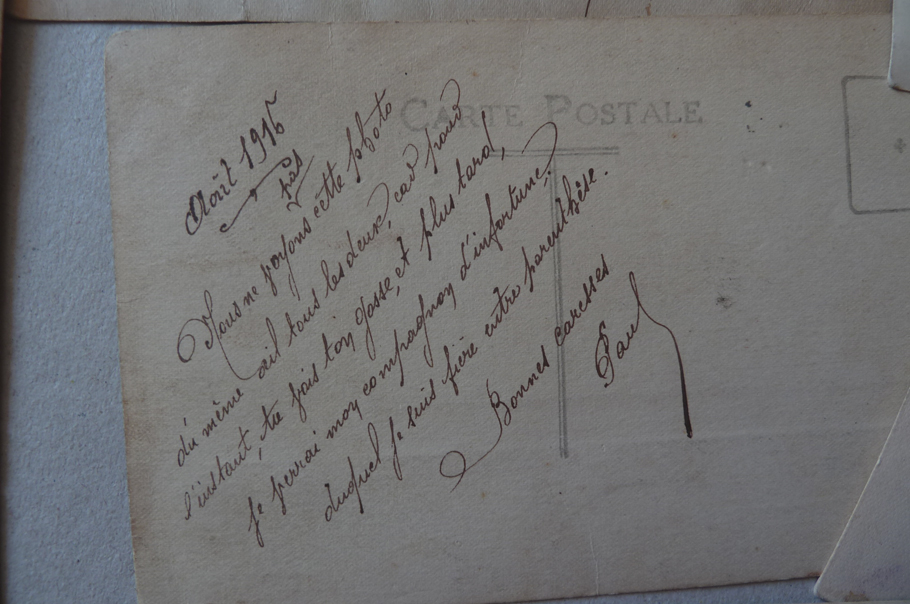 CARTE POSTALE
Août 1916
pas
Nous ne voyons cette photo
du même œil tous les deux, car pour
l'instant, tu vois ton gosse, et plus tard,
je verrai mon compagnon d'infortune,
duquel je suis fière entre parenthèse.
Bonnes caresses
Paul